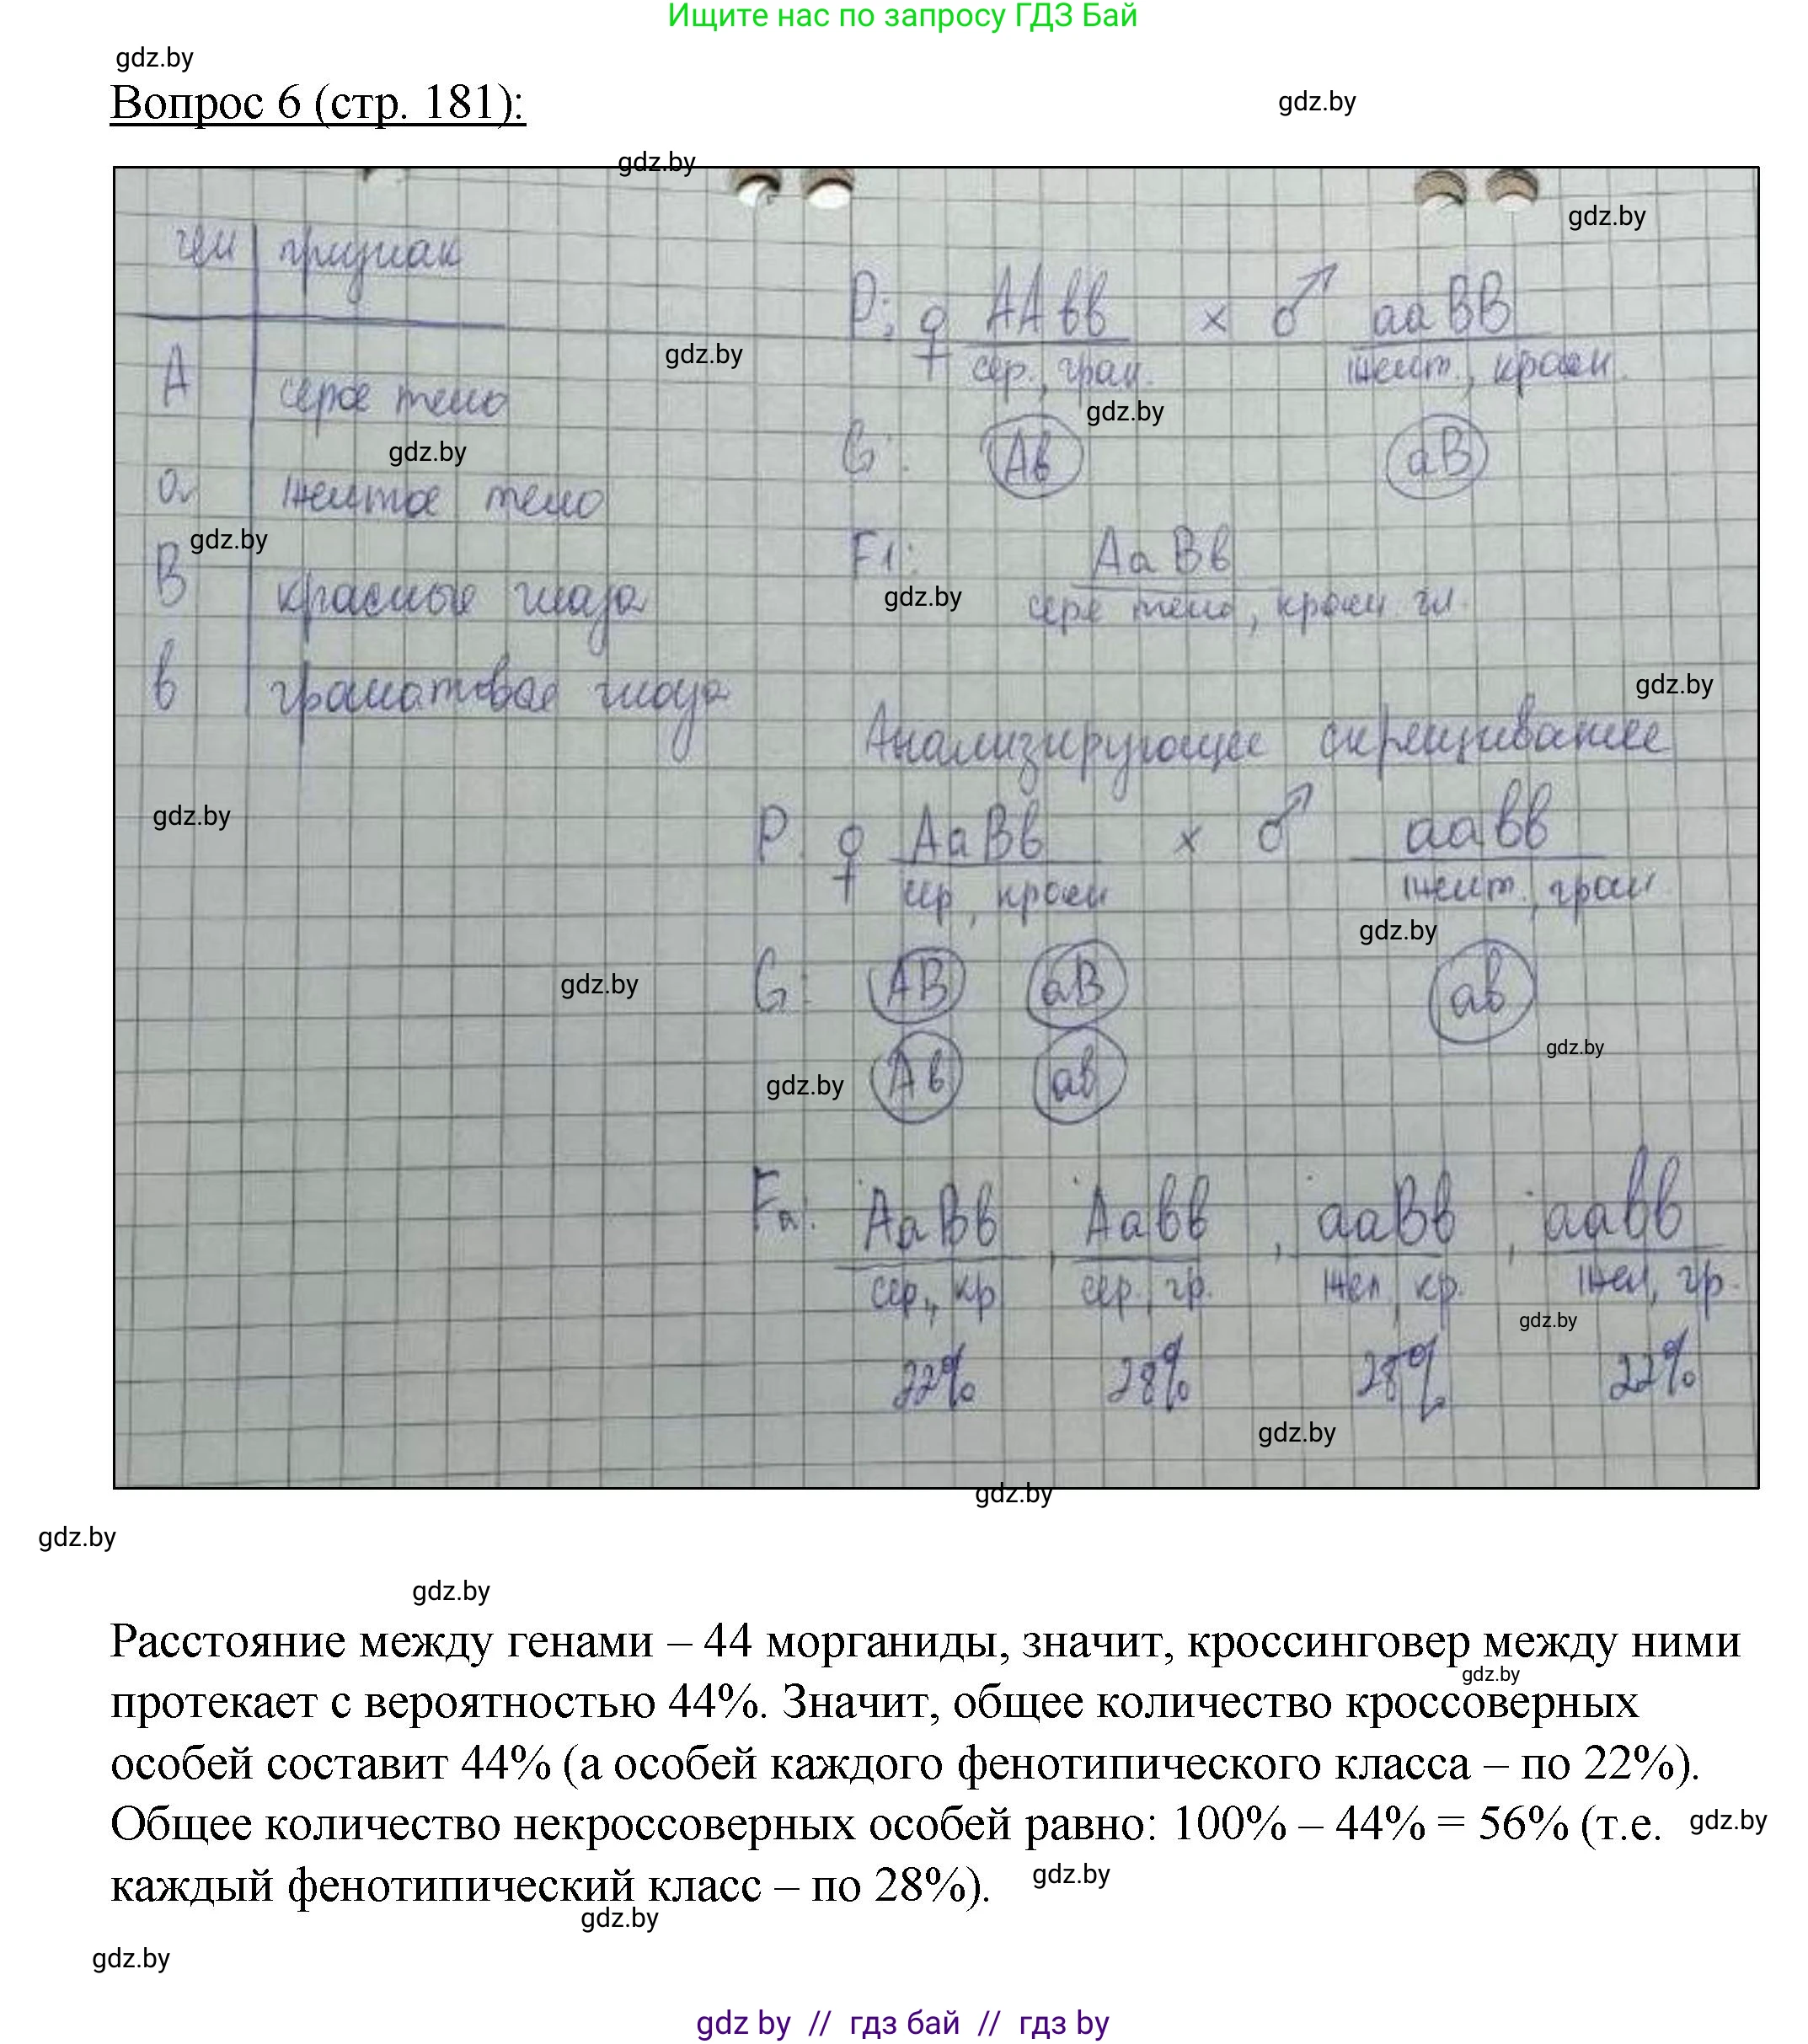 Ищите нас по запросу ГДЗ Бай
gdz.by
Вопрос 6 (стр. 181):
gdz.by
gdz.by
gdz.by
ген признак
P: ♀ ААвв × ♂ ааВВ
gdz.by
А серое тело
сер., гран. желт., красн.
gdz.by
gdz.by
G: Ав аВ
а желтое тело
gdz.by
F1: АаВв
В красные глаза
gdz.by
серое тело, красн гл.
gdz.by
в гранатовые глаза
Анализирующее скрещивание
gdz.by
P. ♀ АаВв × ♂ аавв
сер, красн желт., гран
gdz.by
gdz.by
G: АВ аВ ав
gdz.by
gdz.by
Ав ав
Fа: АаВв, Аавв, ааВв, аавв
сер., кр сер., гр. жел, кр. жел, гр.
gdz.by
22% 28% 28% 22%
gdz.by
gdz.by
gdz.by
gdz.by
Расстояние между генами – 44 морганиды, значит, кроссинговер между ними
gdz.by
протекает с вероятностью 44%. Значит, общее количество кроссоверных
особей составит 44% (а особей каждого фенотипического класса – по 22%).
Общее количество некроссоверных особей равно: 100% – 44% = 56% (т.е.
gdz.by
каждый фенотипический класс – по 28%).
gdz.by
gdz.by
gdz.by
gdz by // гдз бай // гдз by